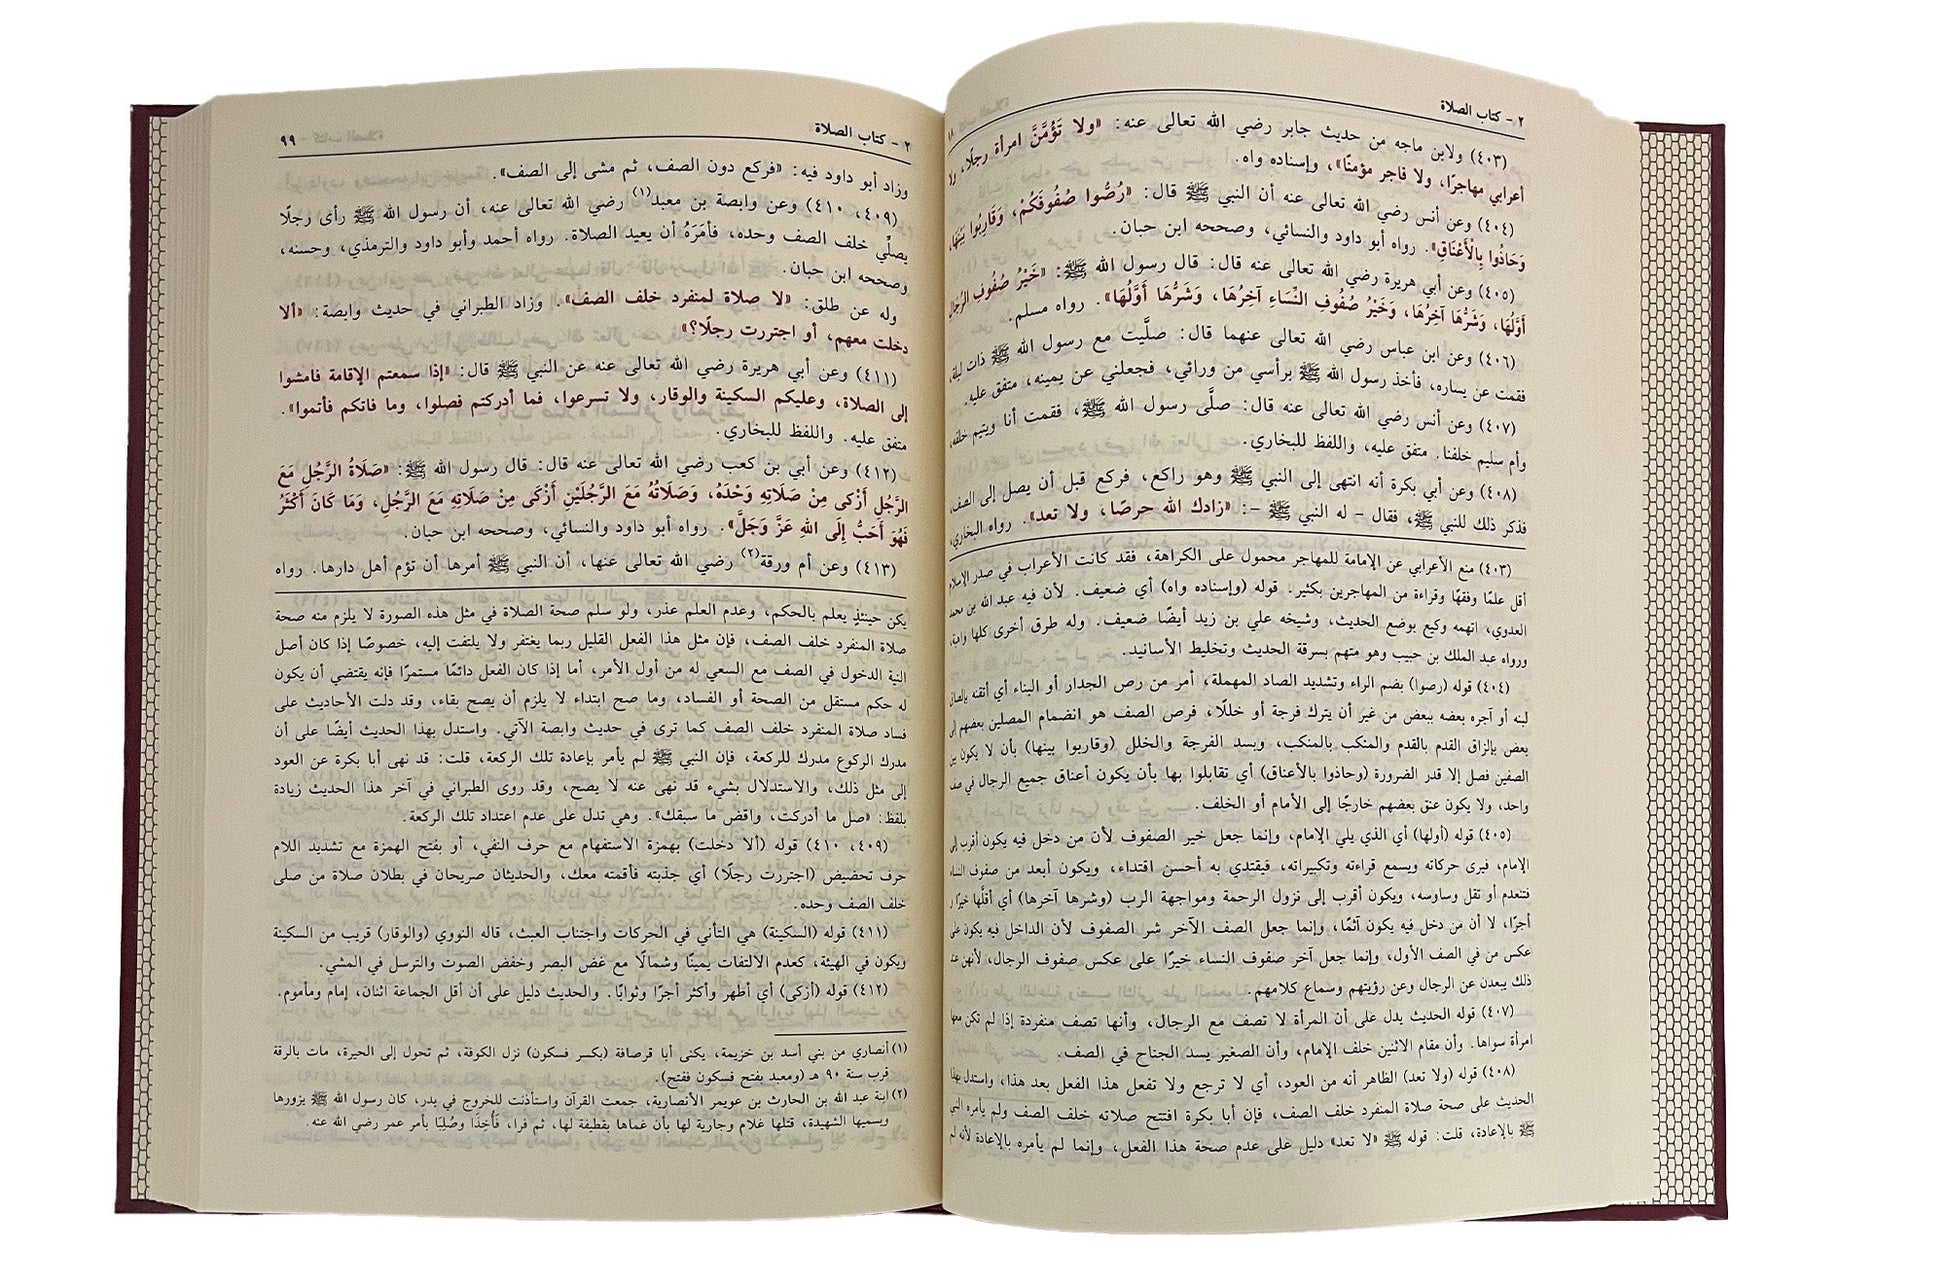 ٢ - كتاب الصلاة
(٤٠٣) ولابن ماجه من حديث جابر رضي الله تعالى عنه: «ولا تَؤُمَّنَّ امرأة رجلًا، ولا
أعرابي مهاجرًا، ولا فاجر مؤمنًا»، وإسناده واه.
(٤٠٤) وعن أنس رضي الله تعالى عنه أن النبي ﷺ قال: «رُصُّوا صُفُوفَكُمْ، وَقَارِبُوا بَيْنَهَا،
وَحَاذُوا بِالْأَعْنَاقِ». رواه أبو داود والنسائي، وصححه ابن حبان.
(٤٠٥) وعن أبي هريرة رضي الله تعالى عنه قال: قال رسول الله ﷺ: «خَيْرُ صُفُوفِ الرِّجَالِ
أَوَّلُهَا، وَشَرُّهَا آخِرُهَا، وَخَيْرُ صُفُوفِ النِّسَاءِ آخِرُهَا، وَشَرُّهَا أَوَّلُهَا». رواه مسلم.
(٤٠٦) وعن ابن عباس رضي الله تعالى عنهما قال: صلَّيت مع رسول الله ﷺ ذات ليلة،
فقمت عن يساره، فأخذ رسول الله ﷺ برأسي من ورائي، فجعلني عن يمينه، متفق عليه.
(٤٠٧) وعن أنس رضي الله تعالى عنه قال: صلَّى رسول الله ﷺ، فقمت أنا ويتيم خلفه،
وأم سليم خلفنا. متفق عليه، واللفظ للبخاري.
(٤٠٨) وعن أبي بكرة أنه انتهى إلى النبي ﷺ وهو راكع، فركع قبل أن يصل إلى الصف،
فذكر ذلك للنبي ﷺ، فقال - له النبي ﷺ -: «زادك الله حرصًا، ولا تعد». رواه البخاري،
(٤٠٣) منع الأعرابي عن الإمامة للمهاجر محمول على الكراهة، فقد كانت الأعراب في صدر الإسلام
أقل علمًا وفقهًا وقراءة من المهاجرين بكثير. قوله (وإسناده واه) أي ضعيف. لأن فيه عبد الله بن محمد
العدوي، اتهمه وكيع بوضع الحديث، وشيخه علي بن زيد أيضًا ضعيف. وله طرق أخرى كلها واهية،
ورواه عبد الملك بن حبيب وهو متهم بسرقة الحديث وتخليط الأسانيد.
(٤٠٤) قوله (رصوا) بضم الراء وتشديد الصاد المهملة، أمر من رص الجدار أو البناء أي أتقنه بإلصاق
لبنه أو آجره بعضه ببعض من غير أن يترك فرجة أو خللًا، فرص الصف هو انضمام المصلين بعضهم إلى
بعض بإلزاق القدم بالقدم والمنكب بالمنكب، وبسد الفرجة والخلل (وقاربوا بينها) بأن لا يكون بين
الصفين فصل إلا قدر الضرورة (وحاذوا بالأعناق) أي تقابلوا بها بأن يكون أعناق جميع الرجال في صف
واحد، ولا يكون عنق بعضهم خارجًا إلى الأمام أو الخلف.
(٤٠٥) قوله (أولها) أي الذي يلي الإمام، وإنما جعل خير الصفوف لأن من دخل فيه يكون أقرب إلى
الإمام، فيرى حركاته ويسمع قراءته وتكبيراته، فيقتدي به أحسن اقتداء، ويكون أبعد من صفوف النساء
فتنعدم أو تقل وساوسه، ويكون أقرب إلى نزول الرحمة ومواجهة الرب (وشرها آخرها) أي أقلها خيرًا و
أجرًا، لا أن من دخل فيه يكون آثمًا، وإنما جعل الصف الآخر شر الصفوف لأن الداخل فيه يكون على
عكس من في الصف الأول، وإنما جعل آخر صفوف النساء خيرًا على عكس صفوف الرجال، لأنهن عند
ذلك يبعدن عن الرجال وعن رؤيتهم وسماع كلامهم.
(٤٠٧) قوله الحديث يدل على أن المرأة لا تصف مع الرجال، وأنها تصف منفردة إذا لم تكن معها
امرأة سواها. وأن مقام الاثنين خلف الإمام، وأن الصغير يسد الجناح في الصف.
(٤٠٨) قوله (ولا تعد) الظاهر أنه من العود، أي لا ترجع ولا تفعل هذا الفعل بعد هذا، واستدل بهذا
الحديث على صحة صلاة المنفرد خلف الصف، فإن أبا بكرة افتتح صلاته خلف الصف ولم يأمره النبي
ﷺ بالإعادة، قلت: قوله ﷺ «لا تعد» دليل على عدم صحة هذا الفعل، وإنما لم يأمره بالإعادة لأنه لم
٢ - كتاب الصلاة ٩٩
وزاد أبو داود فيه: «فركع دون الصف، ثم مشى إلى الصف».
(٤٠٩، ٤١٠) وعن وابصة بن معبد(١) رضي الله تعالى عنه، أن رسول الله ﷺ رأى رجلًا
يصلِّي خلف الصف وحده، فأمَرَهُ أن يعيد الصلاة. رواه أحمد وأبو داود والترمذي، وحسنه،
وصححه ابن حبان.
وله عن طلق: «لا صلاة لمنفرد خلف الصف». وزاد الطبراني في حديث وابصة: «ألا
دخلت معهم، أو اجتررت رجلًا؟»
(٤١١) وعن أبي هريرة رضي الله تعالى عنه عن النبي ﷺ قال: «إذا سمعتم الإقامة فامشوا
إلى الصلاة، وعليكم السكينة والوقار، ولا تسرعوا، فما أدركتم فصلوا، وما فاتكم فأتموا».
متفق عليه. واللفظ للبخاري.
(٤١٢) وعن أبي بن كعب رضي الله تعالى عنه قال: قال رسول الله ﷺ: «صَلَاةُ الرَّجُلِ مَعَ
الرَّجُلِ أَزْكَى مِنْ صَلَاتِهِ وَحْدَهُ، وَصَلَاتُهُ مَعَ الرَّجُلَيْنِ أَزْكَى مِنْ صَلَاتِهِ مَعَ الرَّجُلِ، وَمَا كَانَ أَكْثَرَ
فَهُوَ أَحَبُّ إِلَى اللهِ عَزَّ وَجَلَّ». رواه أبو داود والنسائي، وصححه ابن حبان.
(٤١٣) وعن أم ورقة(٢) رضي الله تعالى عنها، أن النبي ﷺ أمرها أن تؤم أهل دارها. رواه
يكن حينئذٍ يعلم بالحكم، وعدم العلم عذر، ولو سلم صحة الصلاة في مثل هذه الصورة لا يلزم منه صحة
صلاة المنفرد خلف الصف، فإن مثل هذا الفعل القليل ربما يغتفر ولا يلتفت إليه، خصوصًا إذا كان أصل
النية الدخول في الصف مع السعي له من أول الأمر، أما إذا كان الفعل دائمًا مستمرًا فإنه يقتضي أن يكون
له حكم مستقل من الصحة أو الفساد، وما صح ابتداء لا يلزم أن يصح بقاء، وقد دلت الأحاديث على
فساد صلاة المنفرد خلف الصف كما ترى في حديث وابصة الآتي. واستدل بهذا الحديث أيضًا على أن
مدرك الركوع مدرك للركعة، فإن النبي ﷺ لم يأمر بإعادة تلك الركعة، قلت: قد نهى أبا بكرة عن العود
إلى مثل ذلك، والاستدلال بشيء قد نهى عنه لا يصح، وقد روى الطبراني في آخر هذا الحديث زيادة
بلفظ: «صل ما أدركت، واقض ما سبقك». وهي تدل على عدم اعتداد تلك الركعة.
(٤٠٩، ٤١٠) قوله (ألا دخلت) بهمزة الاستفهام مع حرف النفي، أو بفتح الهمزة مع تشديد اللام
حرف تحضيض (اجتررت رجلًا) أي جذبته فأقمته معك، والحديثان صريحان في بطلان صلاة من صلى
خلف الصف وحده.
(٤١١) قوله (السكينة) هي التأني في الحركات واجتناب العبث، قاله النووي (والوقار) قريب من السكينة
ويكون في الهيئة، كعدم الالتفات يمينًا وشمالًا مع غض البصر وخفض الصوت والترسل في المشي.
(٤١٢) قوله (أزكى) أي أطهر وأكثر أجرًا وثوابًا. والحديث دليل على أن أقل الجماعة اثنان، إمام ومأموم.
(١) أنصاري من بني أسد بن خزيمة، يكنى أبا قرصافة (بكسر فسكون) نزل الكوفة، ثم تحول إلى الحيرة، مات بالرقة
قرب سنة ٩٠ هـ (ومعبد بفتح فسكون ففتح).
(٢) ابنة عبد الله بن الحارث بن عويمر الأنصارية، جمعت القرآن واستأذنت للخروج في بدر، كان رسول الله ﷺ يزورها
ويسميها الشهيدة، قتلها غلام وجارية لها بأن غماها بقطيفة لها، ثم فرا، فأُخِذَا وصُلِبَا بأمر عمر رضي الله عنه.